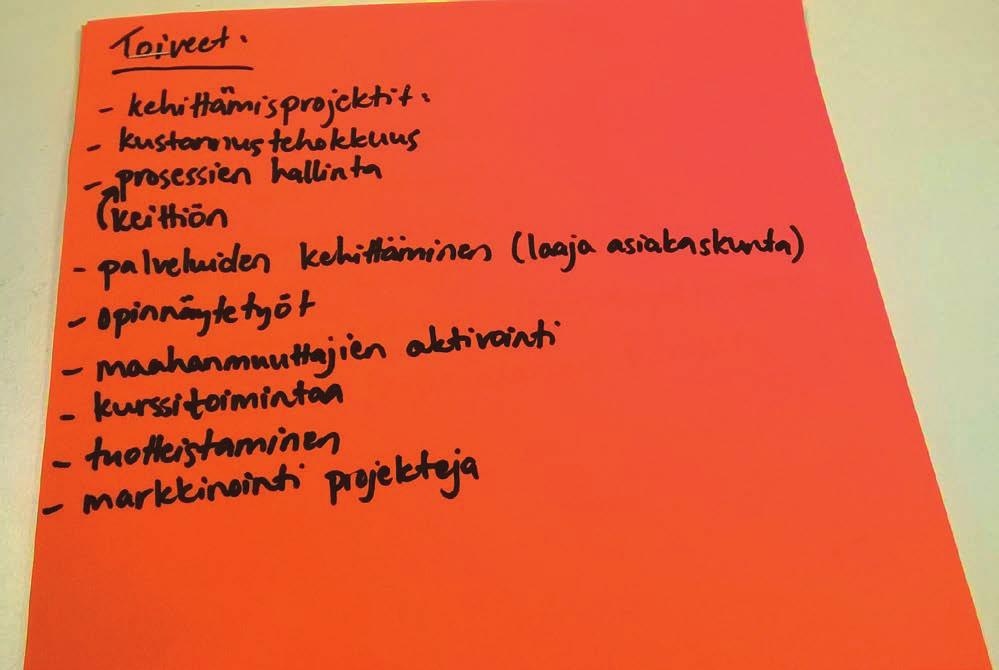 Toiveet.
- kehittämisprojektit:
- kustannustehokkuus
- prosessien hallinta
keittiön
- palveluiden kehittäminen (laaja asiakaskunta)
- opinnäytetyöt
- maahanmuuttajien aktivointi
- kurssitoimintaa
- tuotteistaminen
- markkinointi projekteja